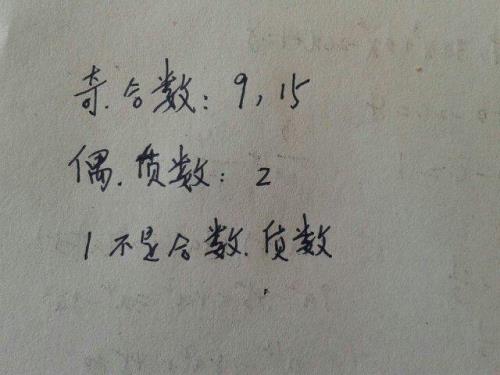 奇.合数: 9, 15
偶.质数: 2
1不是合数.质数